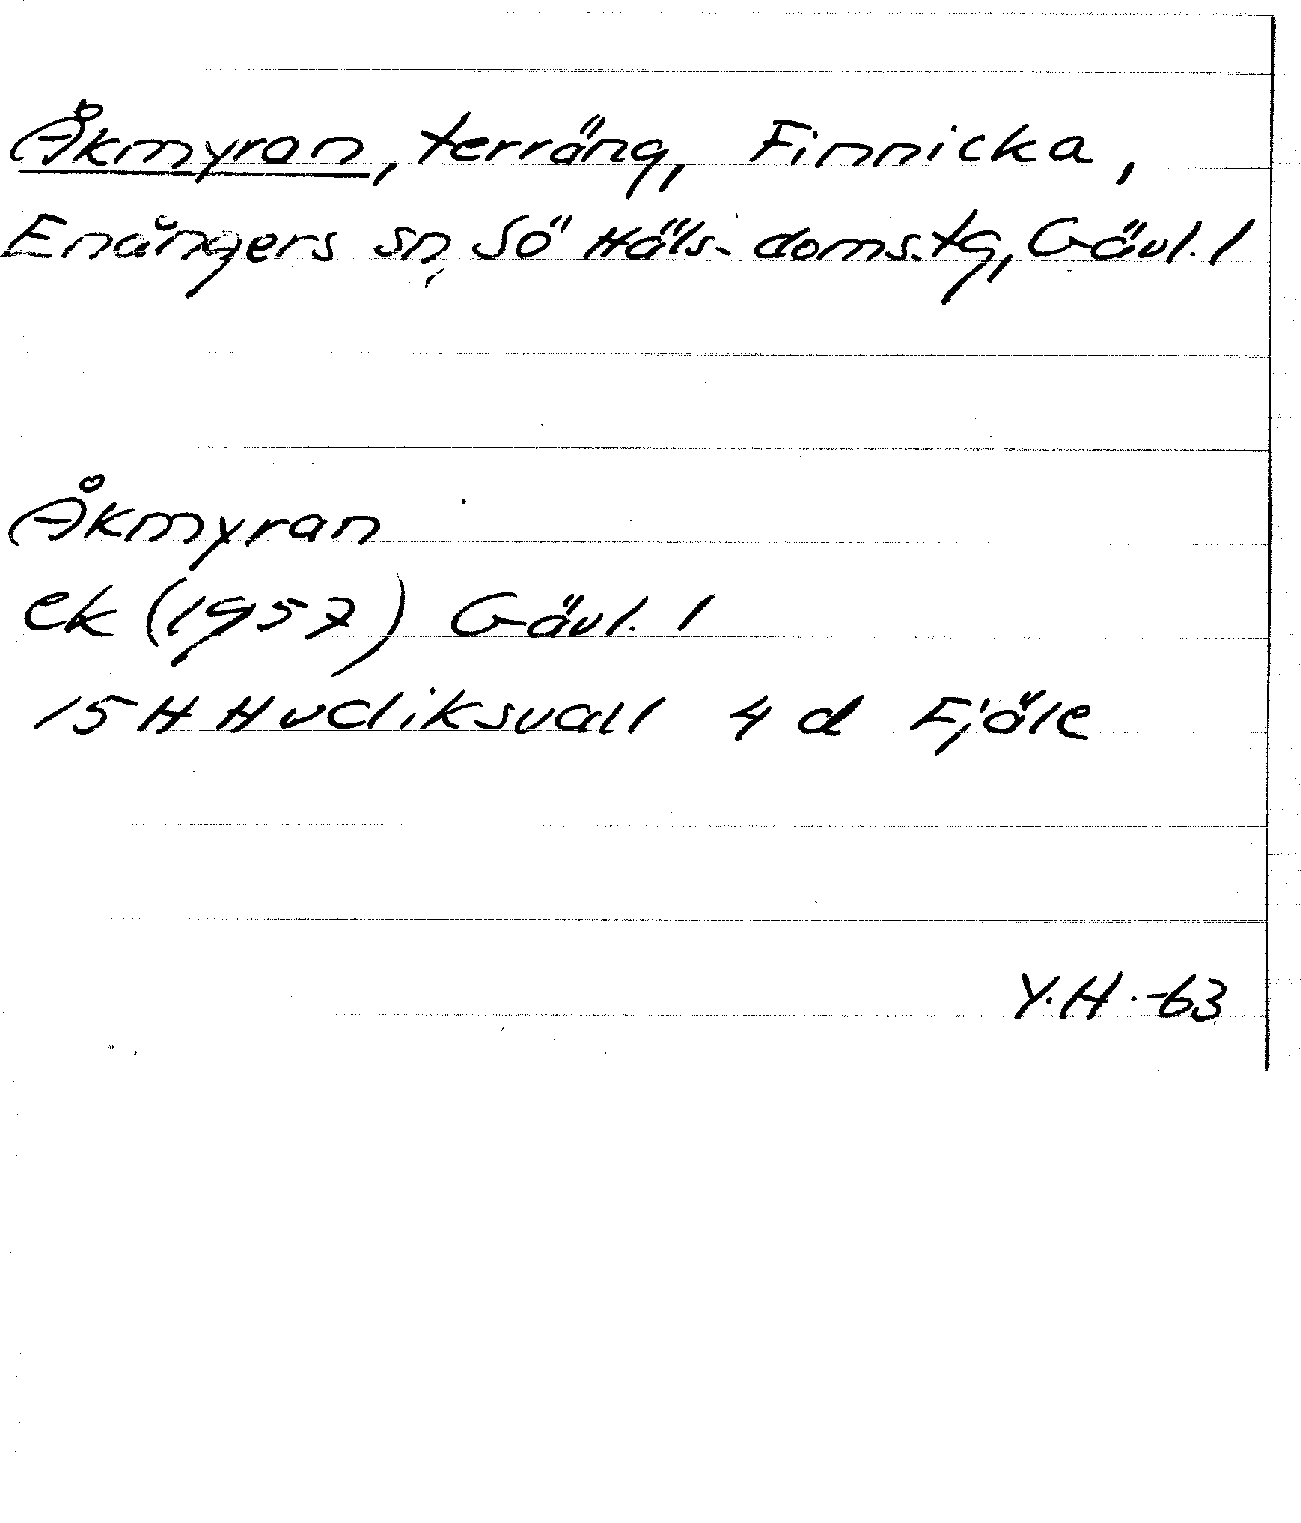 Åkmyran, terräng, Finnicka,
Enångers sn, Sö Häls. doms.tg, Gävl. l
Åkmyran
ek (1957) Gävl. l
15 H Hudiksvall 4 d Fjäle
Y.H.-63